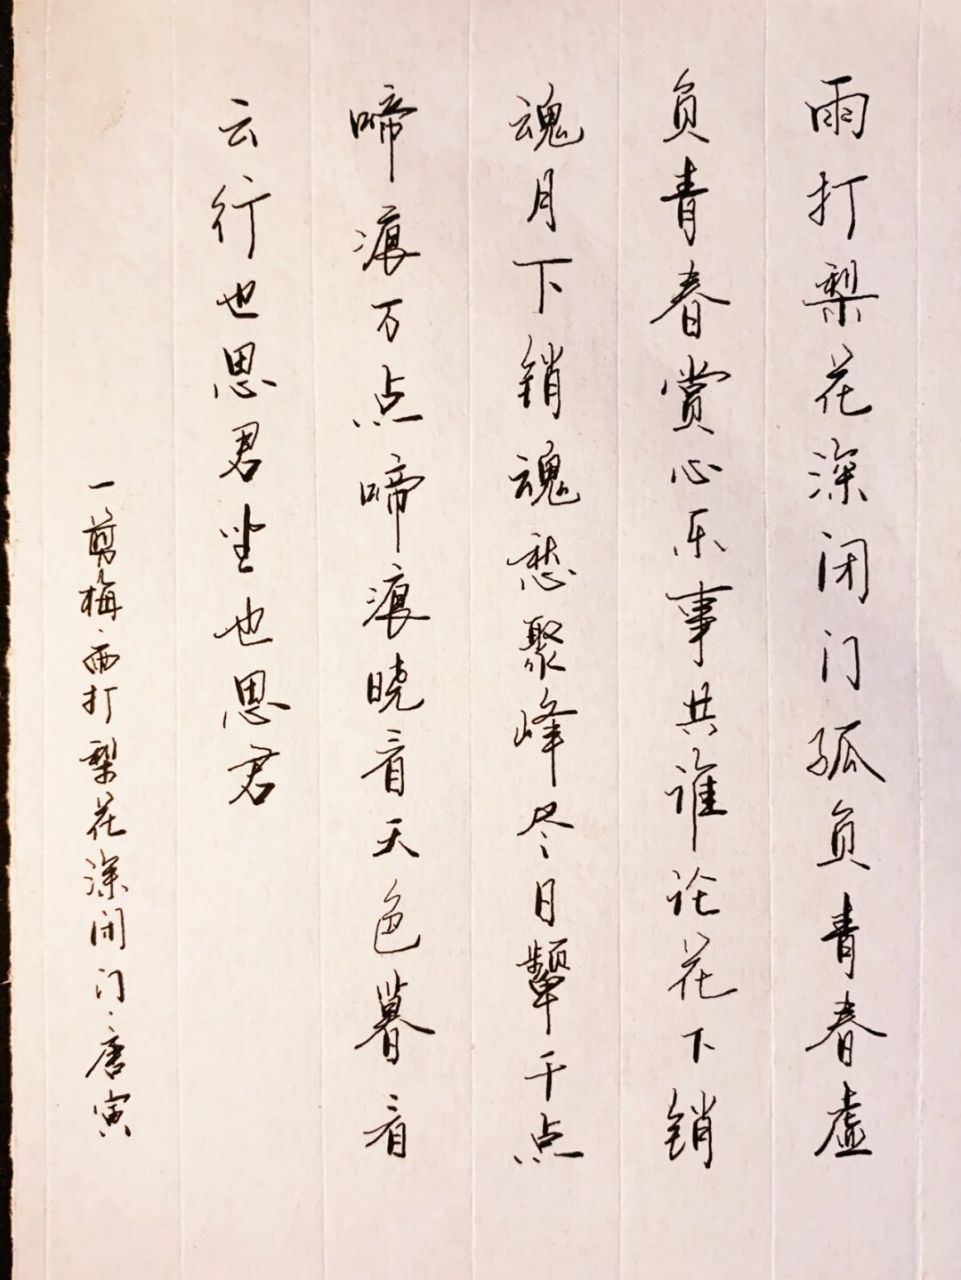 雨打梨花深闭门孤负青春虚
负青春赏心乐事共谁论花下销
魂月下销魂愁聚峰尽日颦千点
啼痕万点啼痕晓看天色暮看
云行也思君坐也思君
一剪梅·雨打梨花深闭门·唐寅